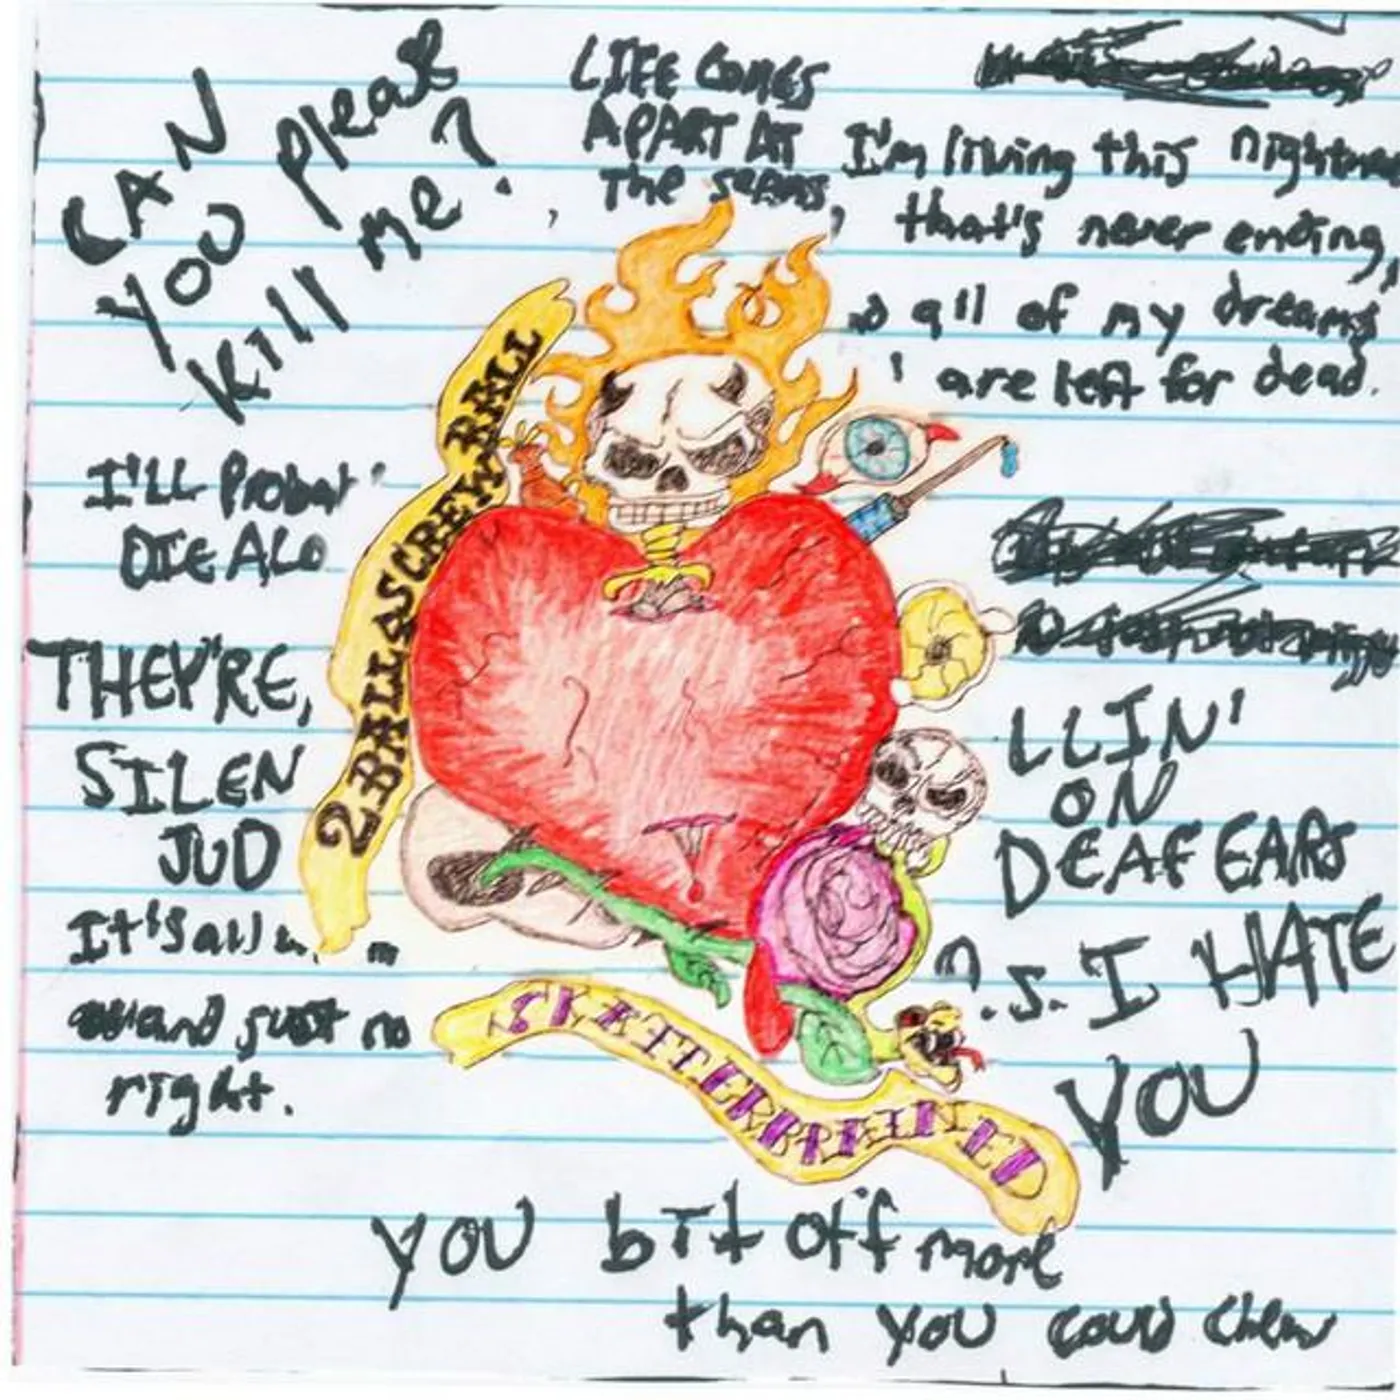 CAN
YOU please
kill me?
LIFE COMES
APART AT
The seams,
I'm living this
that's never ending,
all of my dreams
are left for dead.
2 BALLSSCREWBALL
I'LL
DIE
THEY'RE,
SILEN
JUD
It's all
and just no
right.
LLIN'
ON
DEAF EARS
.S. I HATE
YOU
SKATTERBRAINED
YOU bit off more
than you could chew